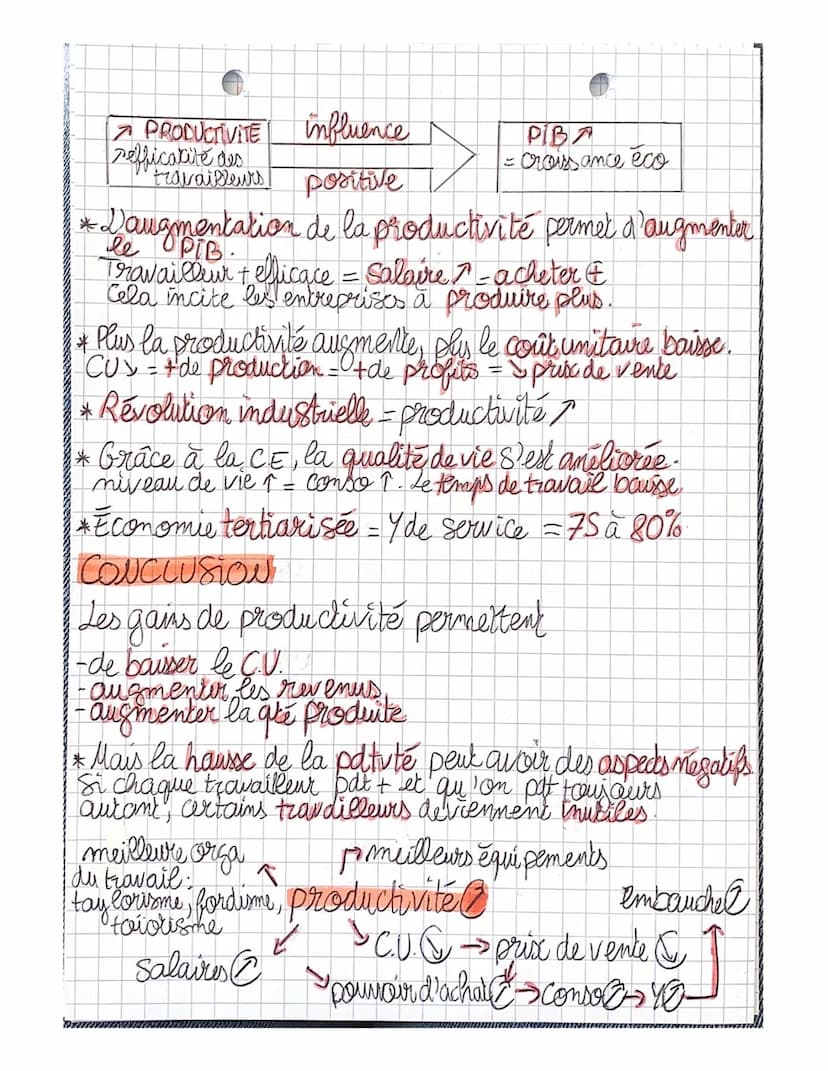 ↗ PRODUCTIVITÉ influence PIB ↗
↗ efficacité des = croissance éco
travailleurs positive
* L'augmentation de la productivité permet d'augmenter
le PIB.
Travailleur + efficace = salaire ↗ = acheter +
Cela incite les entreprises à produire plus.
* Plus la productivité augmente, plus le coût unitaire baisse.
CU ↘ = + de production = + de profits = ↘ prix de vente
* Révolution industrielle = productivité ↗
* Grâce à la CE, la qualité de vie s'est améliorée.
niveau de vie ↑ = conso ↑. Le temps de travail baisse
* Économie tertiarisée = Y de service = 75 à 80%
CONCLUSION
Les gains de productivité permettent
- de baisser le C.U.
- augmenter les revenus
- augmenter la qté produite
* Mais la hausse de la pdtvté peut avoir des aspects négatifs
Si chaque travailleur pdt + et qu'on pdt toujours
autant, certains travailleurs deviennent inutiles.
meilleure orga ↱ meilleurs équipements
du travail: ↖
taylorisme, fordisme, productivité ↗ embauche ↗
toiorisme
↙ ↘ C.U. ↘ → prix de vente ↘
salaires ↗
↘ pouvoir d'achat ↗ → conso ↗ → Y ↗